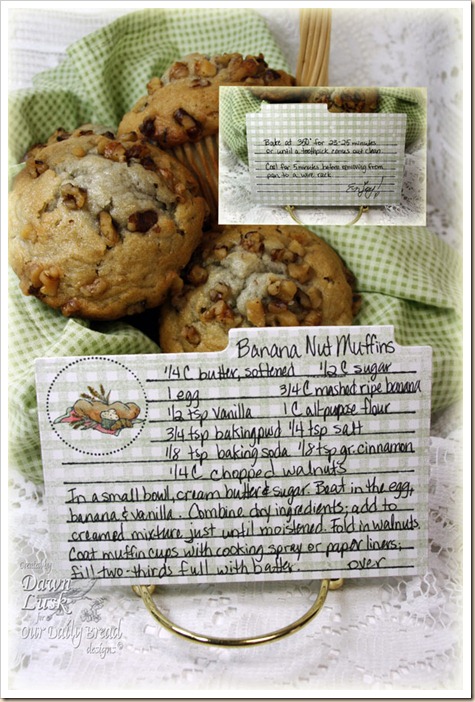 Bake at 350° for 23-25 minutes
or until a toothpick comes out clean.
Cool for 5 minutes before removing from
pan to a wire rack.
Enjoy!
Banana Nut Muffins
1/4 C butter, softened 1/2 C sugar
1 egg 3/4 C mashed ripe banana
1/2 tsp vanilla 1 C all-purpose flour
3/4 tsp baking pwd 1/4 tsp salt
1/8 tsp baking soda 1/8 tsp gr. cinnamon
1/4 C chopped walnuts
In a small bowl, cream butter & sugar. Beat in the egg,
banana & vanilla. Combine dry ingredients; add to
creamed mixture just until moistened. Fold in walnuts.
Coat muffin cups with cooking spray or paper liners;
fill two-thirds full with batter. over
created by
Dawn
Lusk
for
Our Daily Bread
designs